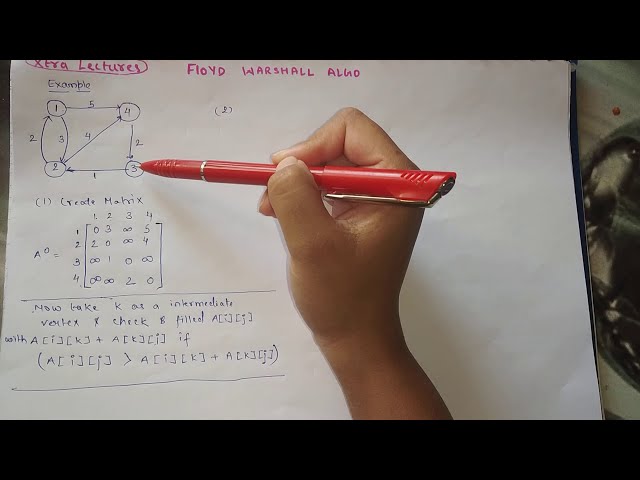 Xtra Lectures
FLOYD WARSHALL ALGO
Example
1 5 4
2 3 4 2
2 1 3
(2)
(1) Create Matrix
1. 2 3 4
1 0 3 ∞ 5
2 2 0 ∞ 4
A⁰ =
3 ∞ 1 0 ∞
4. ∞ ∞ 2 0
Now take k as a intermediate
vertex & check & filled A[i][j]
with A[i][k] + A[k][j] if
(A[i][j] > A[i][k] + A[k][j])